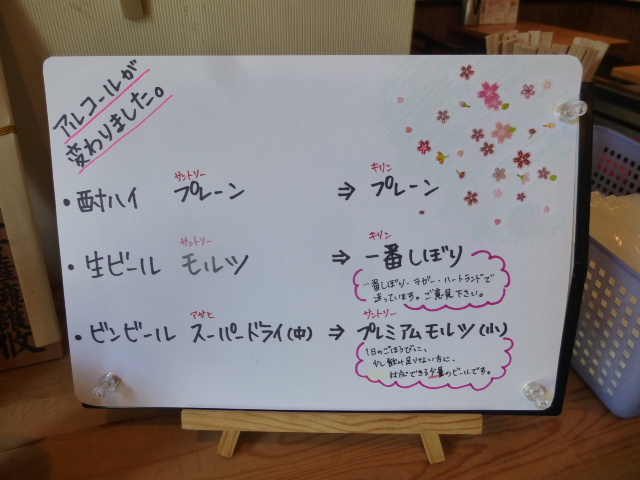 アルコールが
変わりました。
サントリー キリン
・酎ハイ プレーン ⇒ プレーン
サントリー キリン
・生ビール モルツ ⇒ 一番しぼり
一番しぼり・ラガー・ハートランドで
迷っています。ご意見下さい。
アサヒ サントリー
・ビンビール スーパードライ(中) ⇒ プレミアムモルツ(小)
1日のごほうびに、
飲み足りない方に、
対応できる少量のビールです。